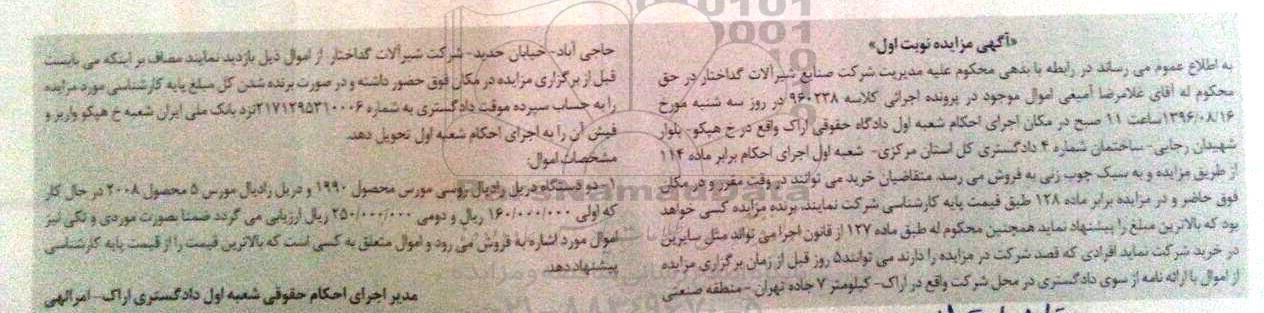 «آگهی مزایده نوبت اول»
به اطلاع عموم می رساند در رابطه با بدهی محکوم علیه مدیریت شرکت صنایع شیرآلات گداختار در حق
محکوم له آقای غلامرضا آمیغی اموال موجود در پرونده اجرائی کلاسه ۹۶۰۲۳۸ در روز سه شنبه مورخ
۱۳۹۶/۰۸/۱۶ساعت ۱۱ صبح در مکان اجرای احکام شعبه اول دادگاه حقوقی اراک واقع در خ هپکو- بلوار
شهیدان رجایی- ساختمان شماره ۴ دادگستری کل استان مرکزی- شعبه اول اجرای احکام برابر ماده ۱۱۴
از طریق مزایده و به سبک چوب زنی به فروش می رسد. متقاضیان خرید می توانند در وقت مقرر و در مکان
فوق حاضر و در مزایده برابر ماده ۱۲۸ طبق قیمت پایه کارشناسی شرکت نمایند. برنده مزایده کسی خواهد
بود که بالاترین مبلغ را پیشنهاد نماید همچنین محکوم له طبق ماده ۱۲۷ از قانون اجرا می تواند مثل سایرین
در خرید شرکت نماید افرادی که قصد شرکت در مزایده را دارند می توانند۵ روز قبل از زمان برگزاری مزایده
از اموال با ارائه نامه از سوی دادگستری در محل شرکت واقع در اراک- کیلومتر ۷ جاده تهران - منطقه صنعتی
حاجی آباد- خیابان حدید- شرکت شیرآلات گداختار از اموال ذیل بازدید نمایند مضاف بر اینکه می بایست
قبل از برگزاری مزایده در مکان فوق حضور داشته و در صورت برنده شدن کل مبلغ پایه کارشناسی مورد مزایده
را به حساب سپرده موقت دادگستری به شماره ۲۱۷۱۲۹۵۳۱۰۰۰۶نزد بانک ملی ایران شعبه خ هپکو واریز و
فیش آن را به اجرای احکام شعبه اول تحویل دهد.
مشخصات اموال:
۱- دو دستگاه دریل رادیال روسی مورس محصول ۱۹۹۰ و دریل رادیال مورس ۵ محصول ۲۰۰۸ در حال کار
که اولی ۱۶۰/۰۰۰/۰۰۰ ریال و دومی ۲۵۰/۰۰۰/۰۰۰ ریال ارزیابی می گردد ضمنا بصورت موردی و تکی نیز
اموال مورد اشاره به فروش می رود و اموال متعلق به کسی است که بالاترین قیمت را از قیمت پایه کارشناسی
پیشنهاد دهد.
مدیر اجرای احکام حقوقی شعبه اول دادگستری اراک- امرالهی